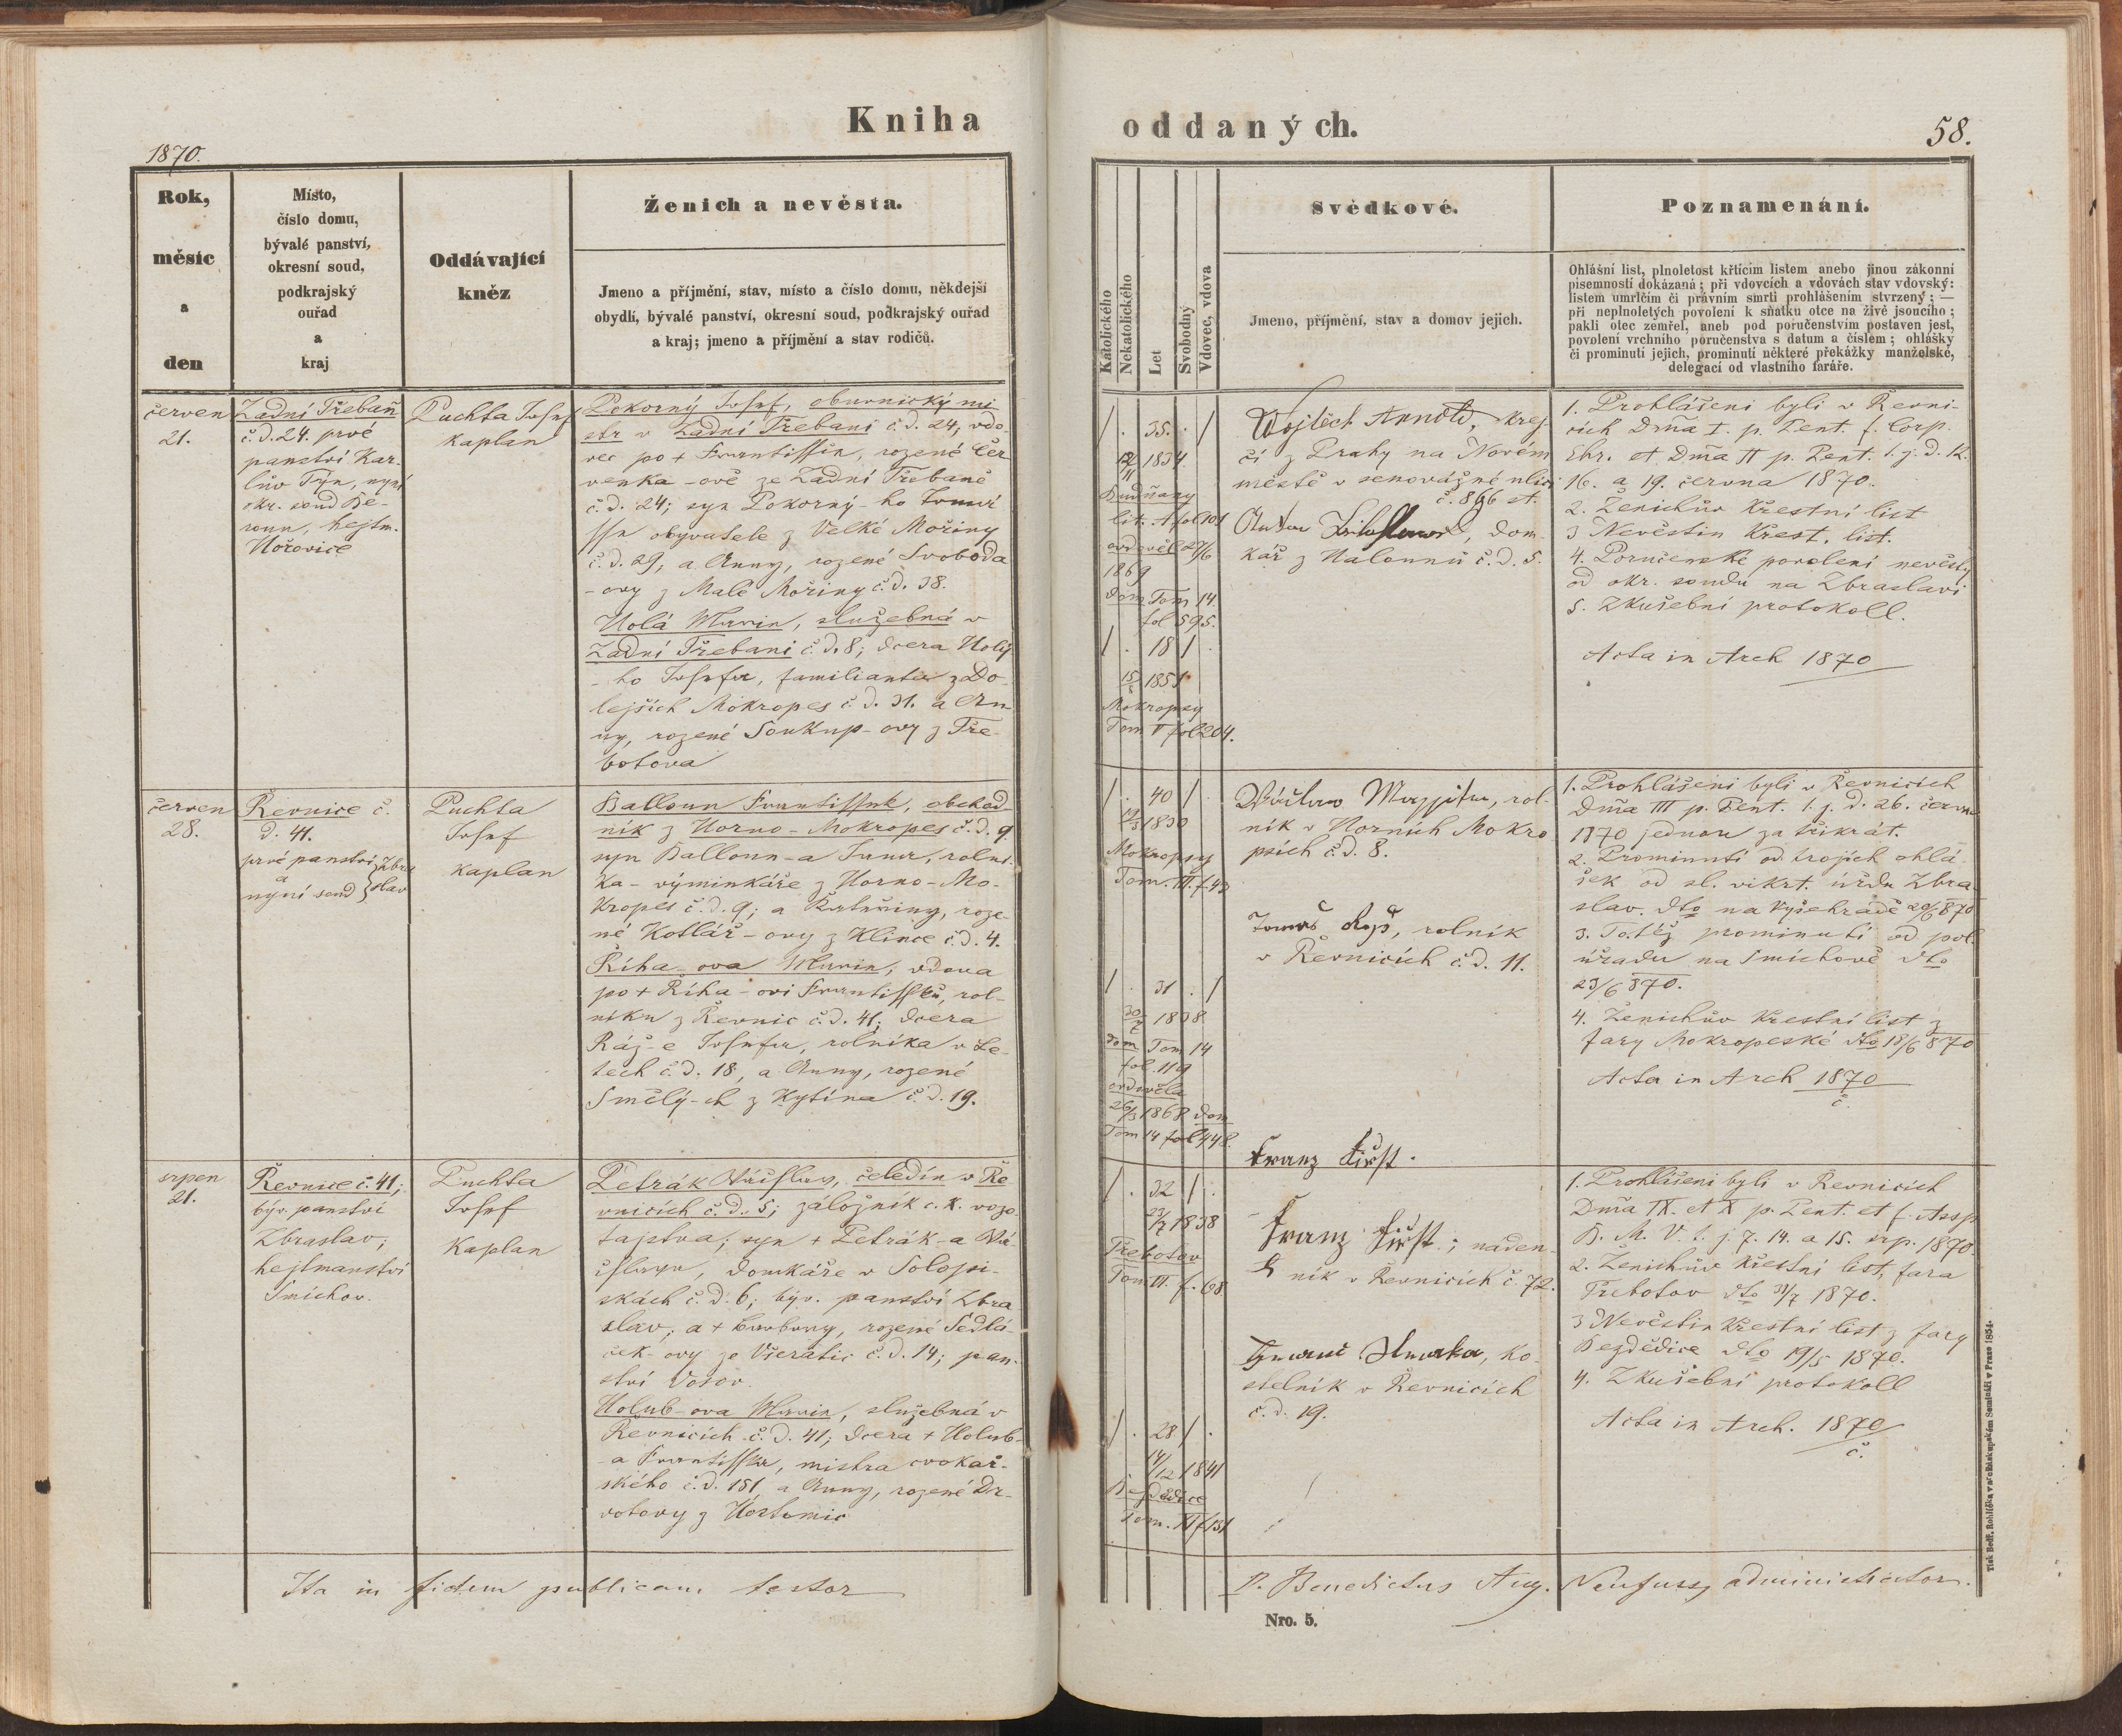 Kniha
1870.
Rok,
měsíc
a
den
Místo,
číslo domu,
bývalé panství,
okresní soud,
podkrajský
ouřad
a
kraj
Oddávající
kněz
Ženich a nevěsta.
Jmeno a příjmění, stav, místo a číslo domu, někdejší
obydlí, bývalé panství, okresní soud, podkrajský ouřad
a kraj; jmeno a příjmění a stav rodičů.
červen
21.
Zadní Třebaň
č. d. 24. prvé
panství Kar-
lův Týn, nyní
okr. soud Be-
roun, hejtm.
Hořovice
Puchta Josef
Kaplan
Pokorný Josef, obuvnický mi
str v Zadní Třebani č. d. 24, vdo-
vec po + Františce, rozené Čer
venka-ově ze Zadní Třebaně
č. d. 24; syn Pokorný-ho
obyvatele z Velké Mořiny
č. d. 29, a Anny, rozené Svoboda
-ovy z Malé Mořiny č. d. 38.
Holá Marie, služebná v
Zadní Třebani č. d. 8; dcera Holý
-ho Josefa, familianta z Do-
lejších Mokropes č. d. 31. a An-
ny, rozené Soukup-ovy z Tře-
botova
červen
28.
Řevnice č.
d. 41.
prvé panství
a
nyní soud
Zbra
slav
Puchta
Josef
Kaplan
Balloun František, obchod-
ník z Horno-Mokropes č. d. 9
syn Balloun-a Jana, rolní-
ka-výminkáře z Horno-Mo-
kropes č. d. 9; a Kateřiny, roze-
né Kotlář-ovy z Klince č. d. 4.
Říha-ova Marie, vdova
po + Říha-ovi Františku, rol-
níku z Řevnic č. d. 41; dcera
Ráž-e Josefa, rolníka v Le-
tech č. d. 18, a Anny, rozené
Smělý-ch z Kytína č. d. 19.
srpen
21.
Řevnice č. 41;
býv. panství
Zbraslav;
hejtmanství
Smíchov.
Puchta
Josef
Kaplan
Petrák Václav, čeledín v Ře
vnicích č. d. 5; záložník c. k. vozo
tajstva; syn + Petrák-a Vá-
clava, domkáře v Solopi-
skách č. d. 6; býv. panství Zbra
slav; a + Barbory, rozené Sedlá-
ček-ovy ze Všeratic č. d. 14; pan-
ství Osov.
Holub-ova Marie, služebná v
Řevnicích č. d. 41; dcera + Holub-
-a Františka, mistra cvokař-
ského č. d. 151, a Anny, rozené Dr-
votovy z Hostomic
Ita in fidem publicam testor
oddaných.
58.
Katolického
Nekatolického
Let
Svobodný
Vdovec, vdova
Svědkové.
Jmeno, příjmění, stav a domov jejich.
Poznamenání.
Ohlášní list, plnoletost křtícím listem anebo jinou zákonní
písemností dokázaná; při vdovcích a vdovách stav vdovský:
listem umrlčím či právním smrti prohlášením stvrzený; —
při neplnoletých povolení k sňatku otce na živě jsoucího;
pakli otec zemřel, aneb pod poručenstvím postaven jest,
povolení vrchního poručenstva s datum a číslem; ohlášky
či prominutí jejich, prominutí některé překážky manželské,
delegací od vlastního faráře.
/ . 35. . /
1834
Budňany
lit. A fol 101
ovdověl 27/6
1869
dom Tom 14
fol 595.
/ . 18 / .
15/8 1851
Mokropsy
Tom II fol 204.
Wojtěch Arnold, krej-
čí z Prahy na Novém
městě v senovážné ulici
č. 866 st.
dom-
kář z Halounů č. d. 5.
1. Prohlášeni byli v Řevni-
cích Dnīa I. p. Pent. f. Corp.
Chr. et Dnīa II p. Pent. t. j. d. 12.
16. a 19. června 1870.
2. Ženichův křestní list
3 Nevěstin křest. list.
4. Poručenské povolení nevěsty
od okr. soudu na Zbraslavi
5. Zkušební protokoll.
Acta in Arch 1870
/ . 40 / .
1830
Mokropsy
Tom. III. f. 43
/ . 31 . /
30/7 1838
dom Tom 14
fol. 119
ovdověla
26/3 1868 dom
Tom 14 fol 448.
Václav, rol-
ník v Horních Mokro
psích č. d. 8.
Tomáš, rolník
v Řevnicích č. d. 11.
Franz Fürst.
1. Prohlášeni byli v Řevnicích
Dnīa III p. Pent. t. j. d. 26. června
1870 jednou za třikrát.
2. Prominutí od trojích ohlá-
šek od sl. vikrt. úřdu Zbra-
slav. dto na Vyšehradě 20/6 870
3. Totéž prominutí od pol.
úřadu na Smíchově dto
23/6 870.
4. Ženichův křestní list z
fary Mokropeské dto 18/6 870
Acta in Arch 1870
č.
/ . 32 / .
1838
Třebotov
Tom VI. f. 68
/ . 28 / .
14/12 1841
Bezdědice
Tom. XI f 151
Franz Fürst; náden-
ník v Řevnicích č. 72.
Ignanc, ko-
stelník v Řevnicích
č. d. 19.
1. Prohlášeni byli v Řevnicích
Dnīa IX. et X p. Pent. et f. Assp
B. M. V. t. j. 7. 14. a 15. srp. 1870.
2. Ženichův křestní list, fara
Třebotov dto 31/7 1870.
3 Nevěstin křestní list z fary
Bezdědice dto 19/5 1870.
4. Zkušební protokoll
Acta in Arch. 1870
č.
P. Benedictus Aug. Neufuss, administrator.
Nro. 5.
Tisk Bedř. Rohlíčka v arcibiskupském Semináři v Praze 1854.